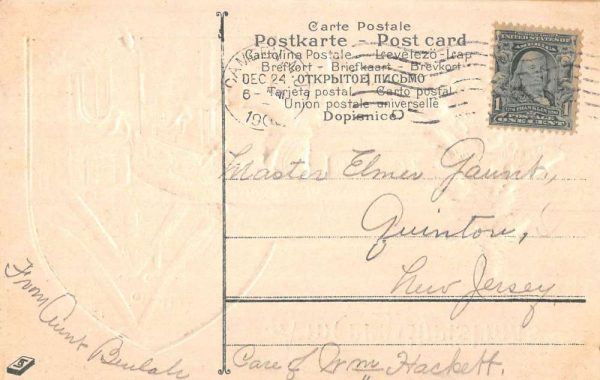 Carte Postale
Postkarte - Post card
Cartolina Postale - Levelező-Lap
Brefkort - Briefkaart - Brevkort
DEC 24 ОТКРЫТОЕ ПИСЬМО
6- Tarjeta postal - Carto postal
Union postale universelle
190
Dopisnice
UNITED STATES OF
AMERICA
1 1
Master Elmer Gaunt,
Quinton,
New Jersey
From Aunt
Beulah
Care of Wm Hackett.
5